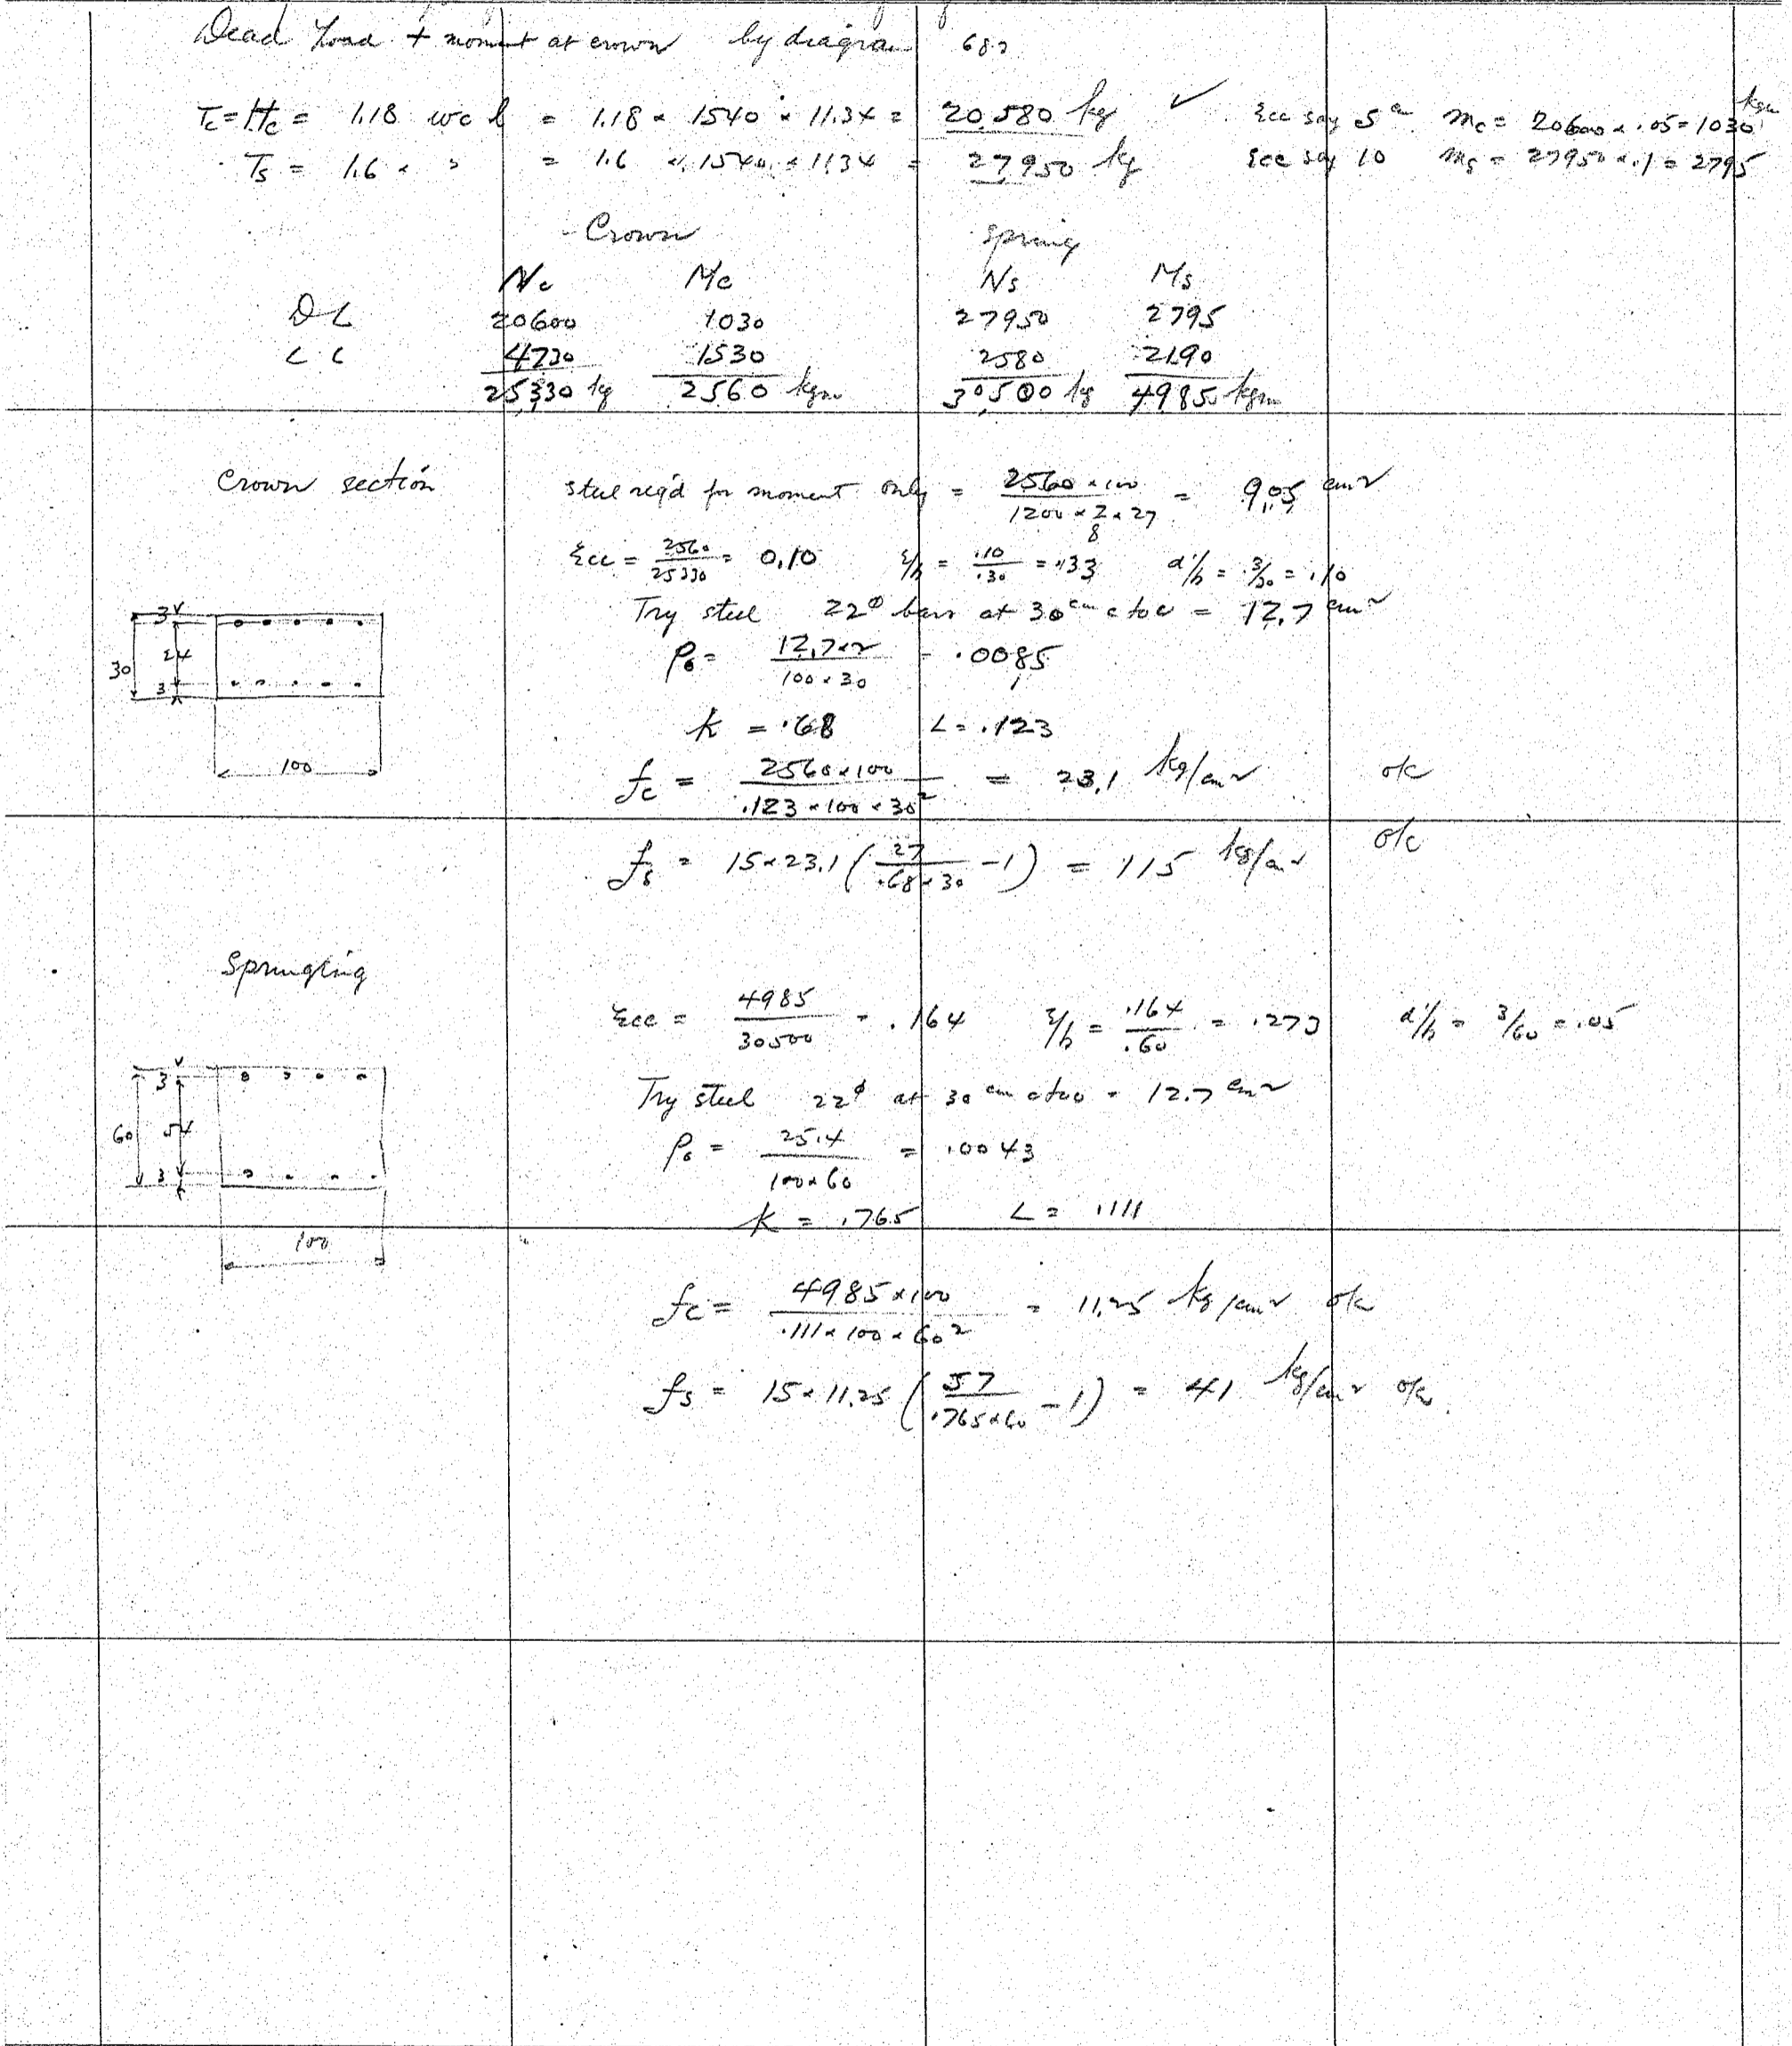 Dead Load + moment at crown by diagram 68.2
Tc = Hc = 1.18 wc l = 1.18 × 1540 × 11.34 = 20,580 kg ✓ Ecc say 5 cm Mc = 20600 × .05 = 1030 kgm
Ts = 1.6 × " = 1.6 × 1540 × 11.34 = 27,950 kg Ecc say 10 Ms = 27950 × .1 = 2795
Crown Spring
Nc Mc Ns Ms
DL 20600 1030 27950 2795
LL 4730 1530 2580 2190
25,330 kg 2560 kgm 30,500 kg 4985 kgm
Crown section Steel req'd for moment only = 2560 × 100 / 1200 × 7/8 × 27 = 9.05 cm²
Ecc = 2560/25330 = 0.10 ε/h = .10/.30 = .33 d'/h = 3/30 = .10
Try steel 22φ bars at 30 cm c to c = 12.7 cm²
3
24
30
3
100
p₀ = 12.7×2 / 100 × 30 = .0085
k = .68 L = .123
fc = 2560 × 100 / .123 × 100 × 30² = 23.1 kg/cm² ok
fs = 15 × 23.1 (27 / .68 × 30 − 1) = 115 kg/cm² ok
Springing
Ecc = 4985/30500 = .164 ε/h = .164/.60 = .273 d'/h = 3/60 = .05
Try steel 22φ at 30 cm c to c = 12.7 cm²
3
60 54
3
100
p₀ = 25.4 / 100 × 60 = .0043
k = .765 L = .111
fc = 4985 × 100 / .111 × 100 × 60² = 11.25 kg/cm² ok
fs = 15 × 11.25 (57 / .765 × 60 − 1) = 41 kg/cm² ok